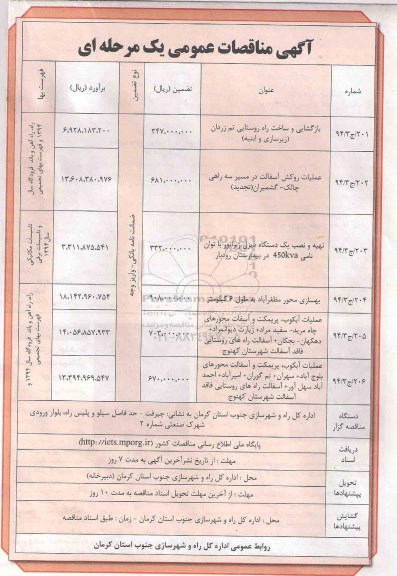 آگهی مناقصات عمومی یک مرحله ای
شماره
عنوان
تضمین (ریال)
نوع تضمین
برآورد (ریال)
فهرست بها
۹۴/۳/ج/۲۰۱
بازگشایی و ساخت راه روستایی تم زردان
(زیرسازی و ابنیه)
۳۴۷,۰۰۰,۰۰۰
۶,۹۲۸,۱۸۳,۲۰۰
۹۴/۳/ج/۲۰۲
عملیات روکش آسفالت در مسیر سه راهی
چالک- گشمیران(تجدید)
۶۸۱,۰۰۰,۰۰۰
۱۳,۶۰۸,۳۸۰,۹۷۶
۹۴/۳/ج/۲۰۳
تهیه و نصب یک دستگاه دیزل ژنراتور با توان
نامی 450kva در بیمارستان رودبار
۳۳۲,۰۰۰,۰۰۰
۳,۳۱۱,۸۷۵,۵۴۱
تاسیسات مکانیکی
و تاسیسات برقی
سال ۱۳۹۴
ضمانت نامه بانکی- واریز وجه
۹۴/۳/ج/۲۰۴
بهسازی محور مظفرآباد به طول ۶ کیلومتر
۹۰۸,۰۰۰,۰۰۰
۱۸,۱۴۲,۹۶۰,۷۵۴
۹۴/۳/ج/۲۰۵
عملیات آبکوب، پریمکت و آسفالت محورهای
چاه مرید- سفید مراد+ زیارت دیوانمراد+
دهکهان- بجکان+ آسفالت راه های روستایی
فاقد آسفالت شهرستان کهنوج
۷۰۳,۰۰۰,۰۰۰
۱۴,۰۵۶,۸۵۷,۹۳۳
۹۴/۳/ج/۲۰۶
عملیات آبکوب، پریمکت و آسفالت محورهای
بلوچ آباد+ سهران+ تم گوران+ امیرآباد+ احمد
آباد سهل آور+ آسفالت راه های روستایی فاقد
آسفالت شهرستان کهنوج
۶۷۰,۰۰۰,۰۰۰
۱۳,۳۹۴,۹۶۹,۵۴۷
دستگاه
مناقصه گزار
اداره کل راه و شهرسازی جنوب استان کرمان به نشانی: جیرفت - حد فاصل سیلو و پلیس راه، بلوار ورودی
شهرک صنعتی شماره ۲
دریافت
اسناد
پایگاه ملی اطلاع رسانی مناقصات کشور (http://iets.mporg.ir)
مهلت : از تاریخ نشر آخرین آگهی به مدت ۷ روز
تحویل
پیشنهادها
محل : اداره کل راه و شهرسازی جنوب استان کرمان (دبیرخانه)
مهلت : از آخرین مهلت تحویل اسناد مناقصه به مدت ۱۰ روز
گشایش
پیشنهادها
محل : اداره کل راه و شهرسازی جنوب استان کرمان - زمان : طبق اسناد مناقصه
روابط عمومی اداره کل راه و شهرسازی جنوب استان کرمان